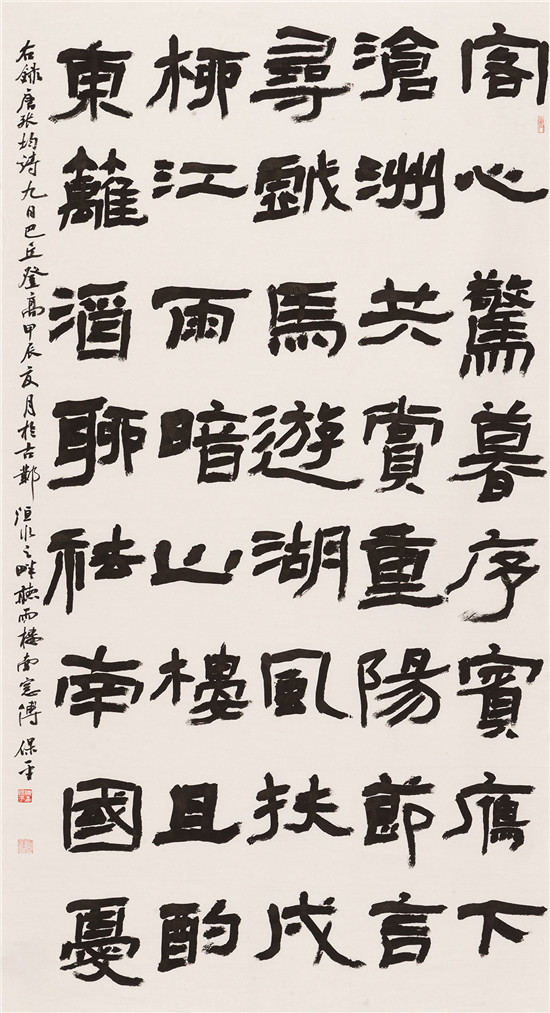 客心驚暮序賓鴈下
滄洲共賞重陽節言
尋戲馬遊湖風扶戍
柳江雨暗山樓且酌
東籬酒聊祛南國憂
右錄唐张均诗九日巴丘登高甲辰夏月於古鄴洹水之畔聽雨楼南窓傅保平